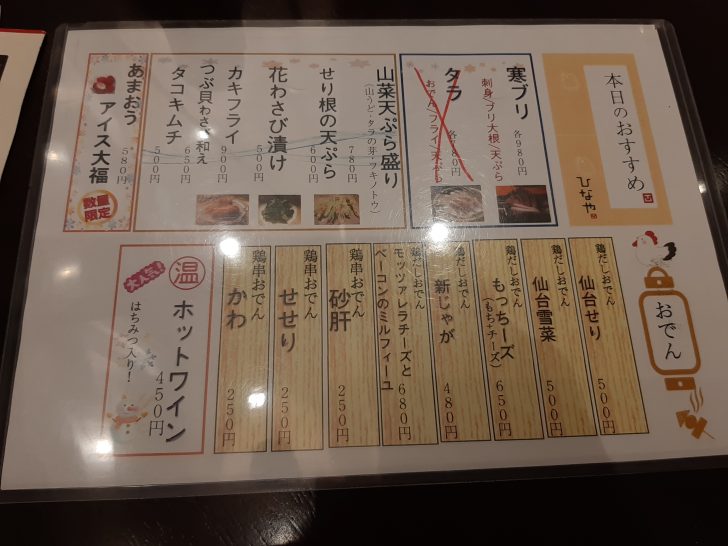 本日のおすすめ
ひなや
寒ブリ
刺身/ブリ大根/天ぷら
各980円
タラ
おでん/フライ/天ぷら
各780円
山菜天ぷら盛り
(山うど・タラの芽・フキノトウ)
780円
せり根の天ぷら
600円
花わさび漬け
500円
カキフライ
900円
つぶ貝わさび和え
650円
タコキムチ
500円
あまおう
アイス大福
580円
数量
限定
おでん
鶏だしおでん
仙台せり
500円
鶏だしおでん
仙台雪菜
500円
鶏だしおでん
もっちーズ
(もち+チーズ)
650円
鶏だしおでん
新じゃが
480円
鶏だしおでん
モッツァレラチーズと
ベーコンのミルフィーユ
680円
鶏串おでん
砂肝
250円
鶏串おでん
せせり
250円
鶏串おでん
かわ
250円
大人気!
温
ホットワイン
はちみつ入り!
450円